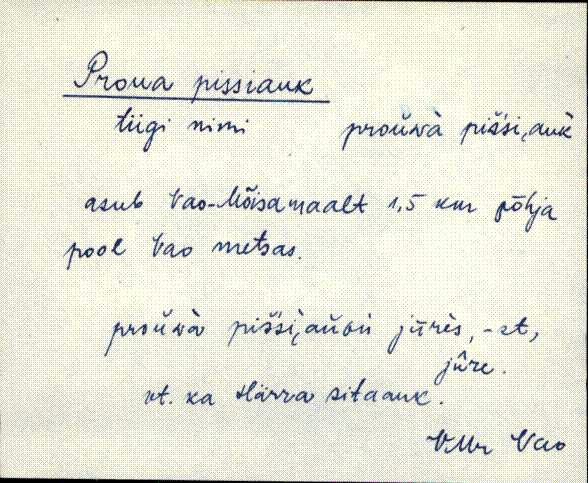 Proua pissiauk
tiigi nimi proŭwà pišśi‚aŭk
asub Vao-Mõisamaalt 1,5 km põhja
pool Vao metsas.
proŭwà pišśi‚aŭòù jūrès, -st,
jūre.
vt. ka Härra sitaauk.
VMr Vao